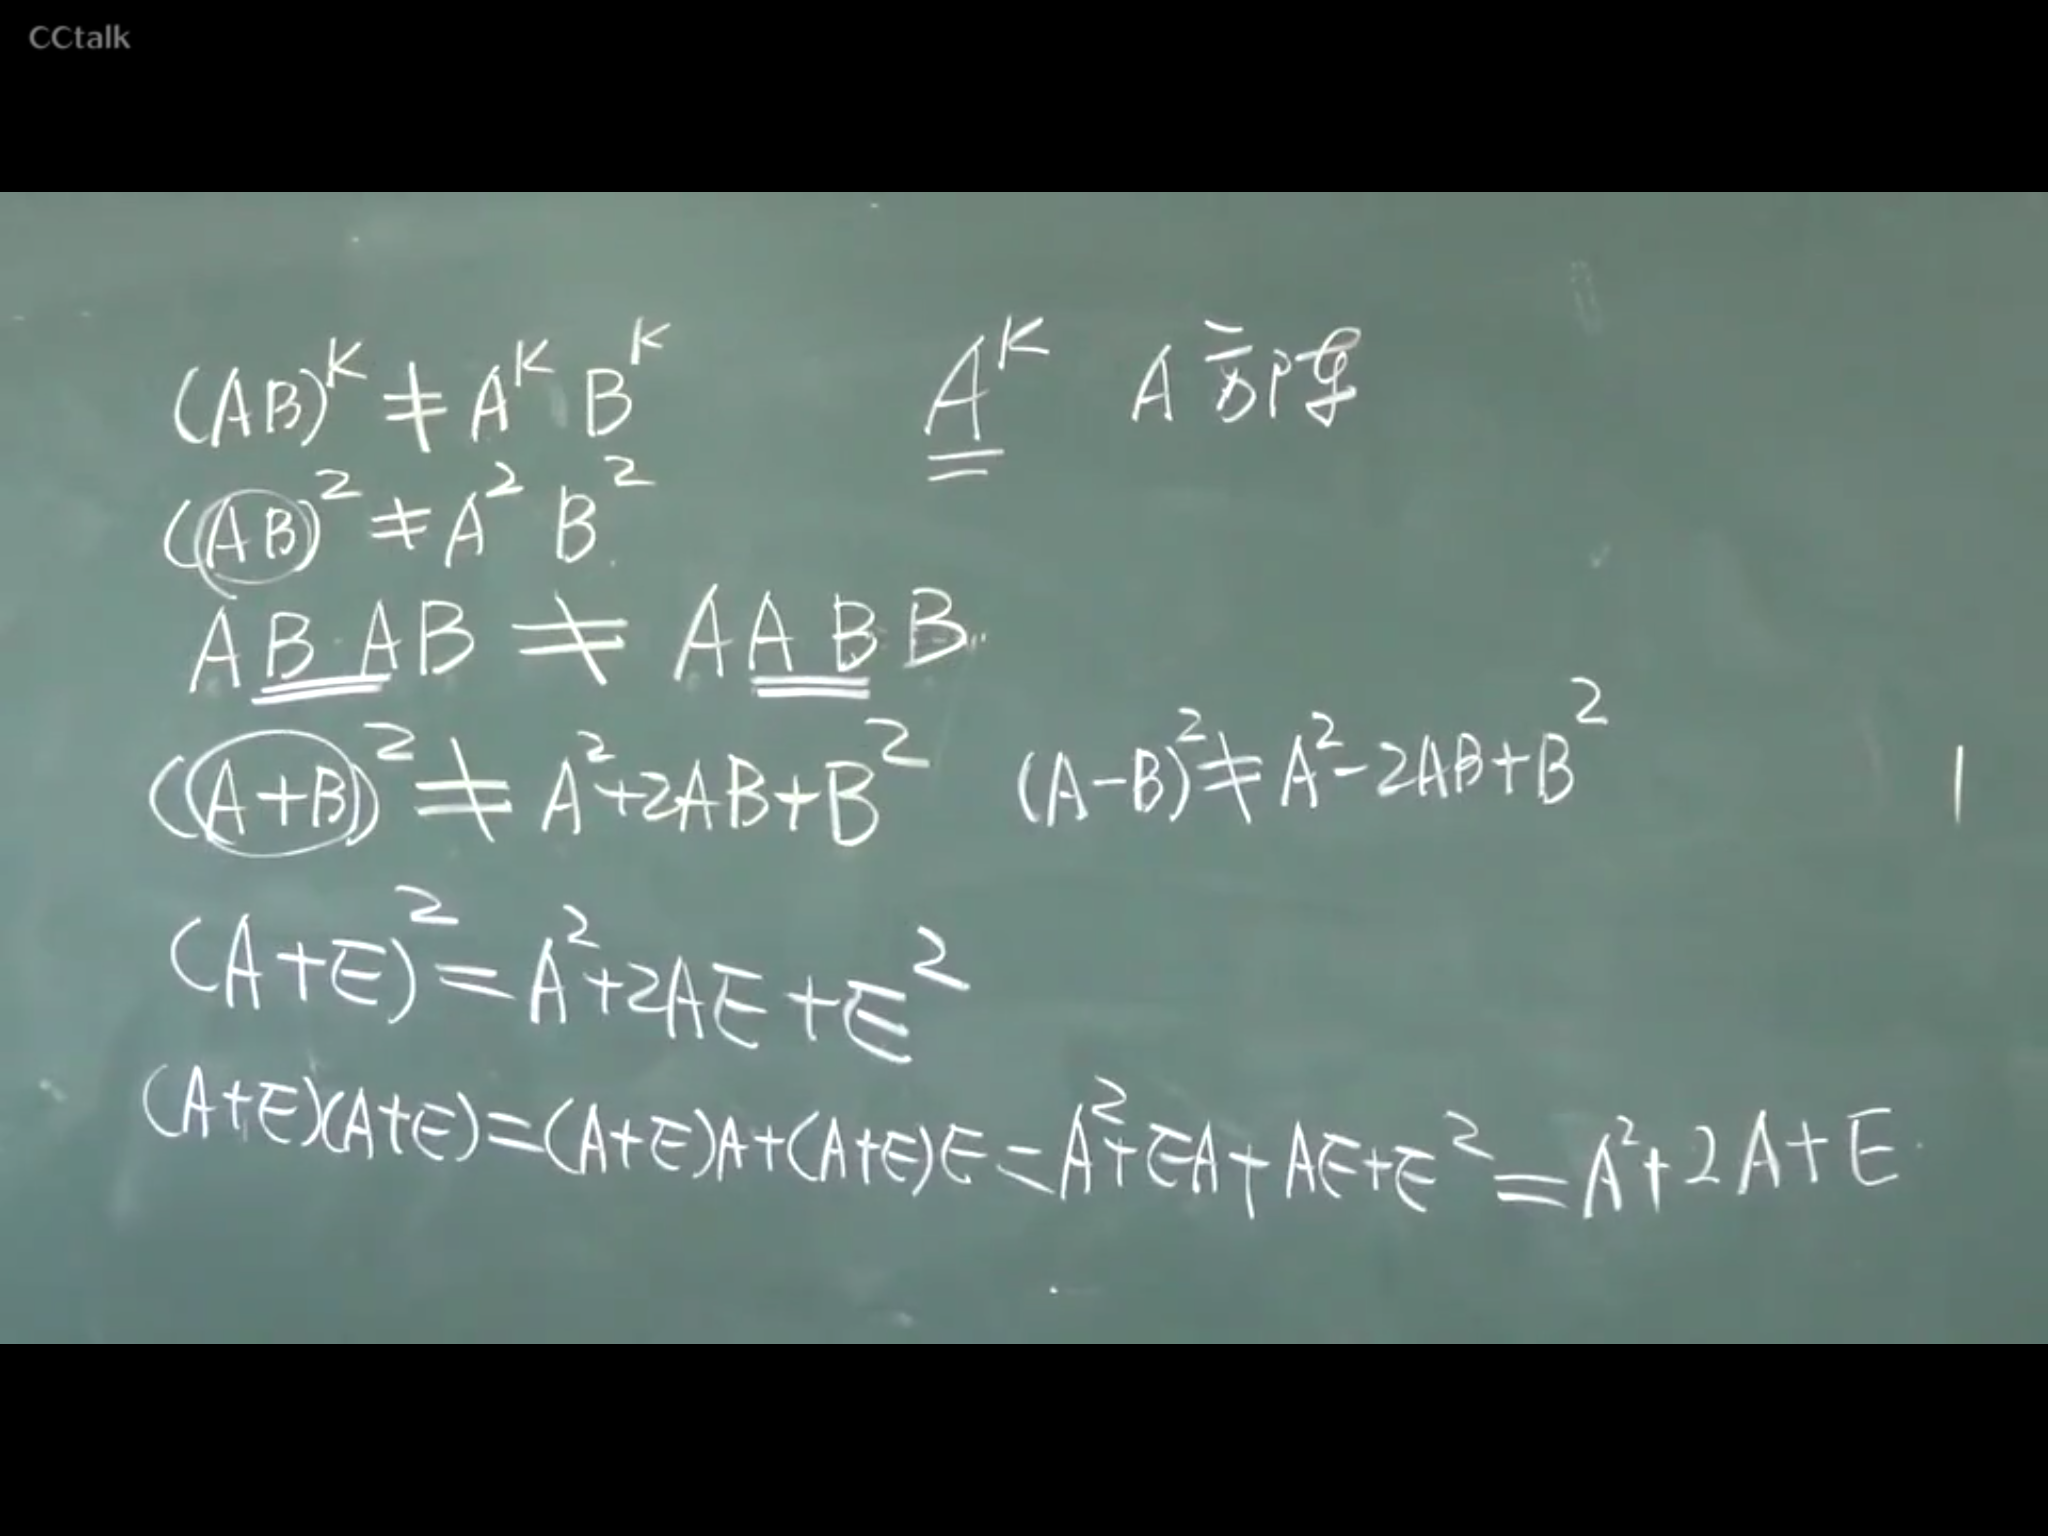 CCtalk
(AB)^K ≠ A^K B^K
A^K A 方阵
(AB)^2 ≠ A^2 B^2
ABAB ≠ AABB
(A+B)^2 ≠ A^2+2AB+B^2
(A-B)^2 ≠ A^2-2AB+B^2
(A+E)^2 = A^2+2AE+E^2
(A+E)(A+E)=(A+E)A+(A+E)E=A^2+EA+AE+E^2=A^2+2A+E